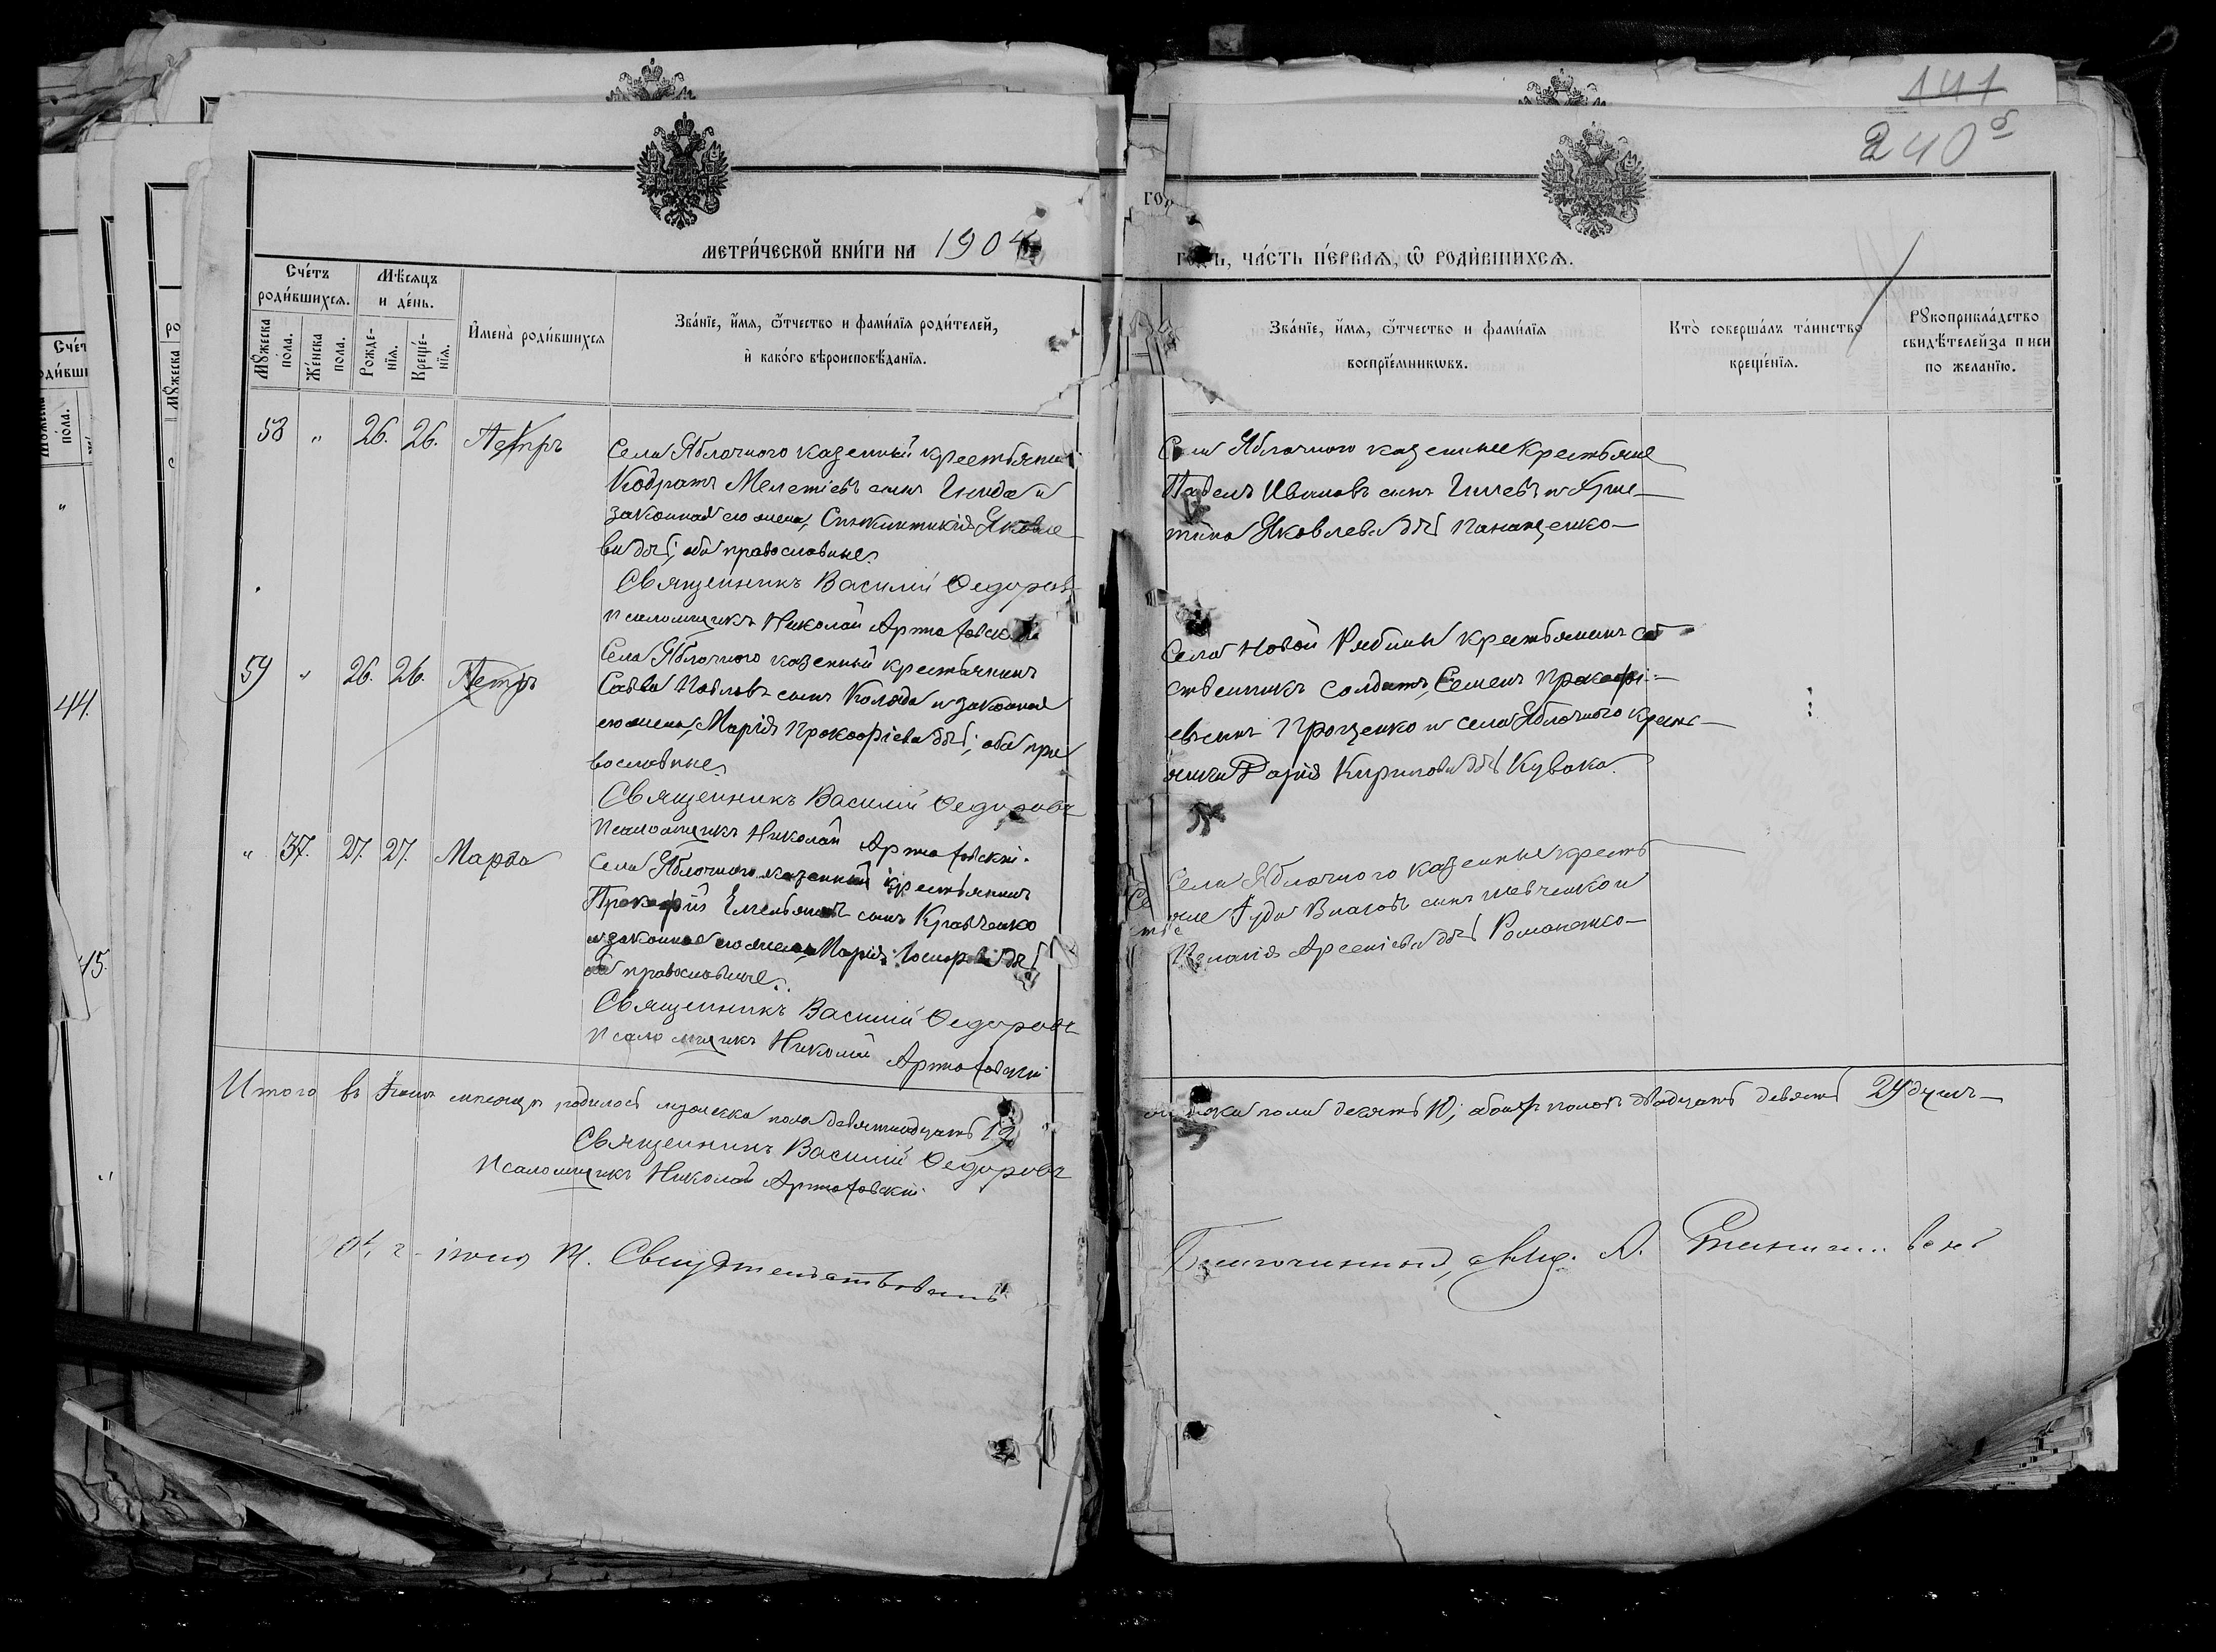 141
240 б
МЕТРИ́ЧЕСКОЙ КНИ́ГИ НА 1904
ГОДЪ, ЧА́СТЬ ПЕ́РВАѦ, Ѡ РОДИ́ВШИХСѦ.
Сче́тъ роди́вшихсѧ.
Мѣ́сѧцъ и де́нь.
Мꙋ́жеска по́ла.
Же́нска по́ла.
Рожде́нїѧ.
Креще́нїѧ.
И҆мена̀ роди́вшихсѧ
Зва́нїе, и҆́мѧ, ѻ҆́тчество и фами́лїѧ роди́телей,
и҆ како́гѡ вѣроисповѣ́данїѧ.
Зва́нїе, и҆́мѧ, ѻ҆́тчество и фами́лїѧ
воспрїе́мникѡвъ.
Кто̀ соверша́лъ та́инство
креще́нїѧ.
Рꙋкоприкла́дство
свидѣ́телей за писи
по жела́нїю.
58 " 26. 26. Петръ
Села Яблочного казенный крестьянинъ
Кодратъ Мелетіевъ сынъ и
законная его жена, Синклитикія Яковле-
ва дчь; оба православные.
Священникъ Василій Федоровъ
Псаломщикъ Николай
Села Яблочного казенные крестьяне
Павелъ Ивановъ сынъ и Хрис-
тина Яковлева дчь Панащенко
59 " 26. 26. Петръ
Села Яблочного казенный крестьянинъ
Савва Павловъ сынъ Коляда и законная
его жена, Марія Прокофіева дчь; оба пра
вославные.
Священникъ Василій Федоровъ
Псаломщикъ Николай
Села Новой Рябины крестьянинъ соб
ственникъ солдатъ, Семенъ Прокофі-
евъ сынъ Проценко и села Яблочного
Кирилова дчь Кувака.
" 37. 27. 27. Марѳа
Села Яблочного казенный крестьянинъ
Прокофій Емельяновъ сынъ Кравченко
и законная его жена Марія дчь
оба православные.
Священникъ Василій Федоровъ
Псаломщикъ Николай
Села Яблочного казенные кресть
яне Іуда Власовъ сынъ Шевченко и
Пелагія Арсеніева дчь Романенко
Итого въ Іюнѣ мѣсяцѣ родилось мужеска пола девятнадцать 19
женска пола десять 10; обоего пола двадцать девять 29 душъ
Священникъ Василій Федоровъ
Псаломщикъ Николай
Свидѣтельствовалъ
Благочинный, Свящ. А.
44.
45.